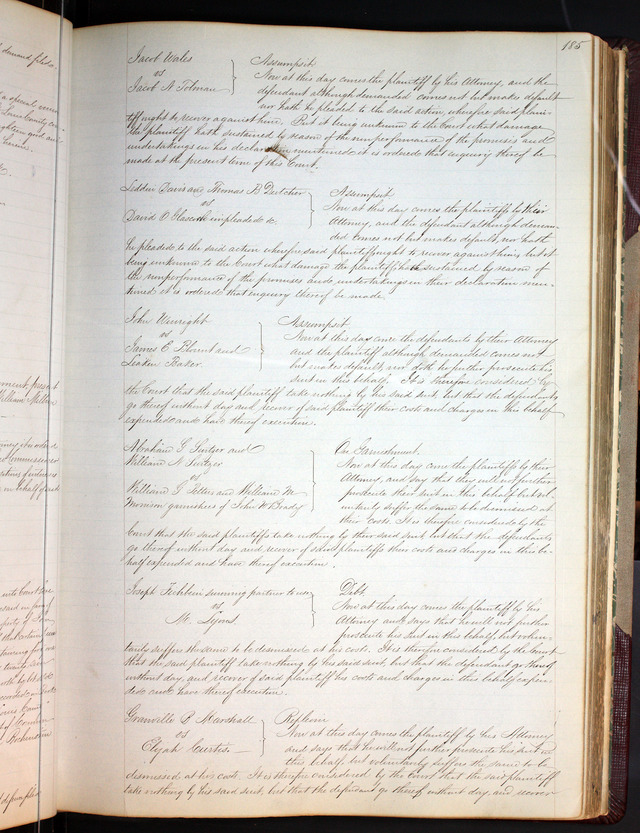 185
Jacob Wales
vs
Jacob A Tolman
Assumpsit
Now at this day comes the plaintiff by his Attorney, and the
defendant although demanded comes not but makes default
nor hath he pleaded to the said action, wherefore said plain-
tiff ought to recover against him. But it being unknown to the Court what damage
the plaintiff hath sustained by reason of the nonperformance of the promises and
undertakings in his declaration mentioned it is ordered that enquiry thereof be
made at the present term of this Court.
Davis and Thomas B
vs
David O impleaded &c.
Assumpsit
Now at this day comes the plaintiffs by their
Attorney, and the defendant although deman-
ded comes not but makes default, nor hath
he pleaded to the said action wherefore said plaintiff ought to recover against him but it
being unknown to the Court what damage the plaintiff hath sustained by reason of
the nonperformance of the promises and undertakings in their declaration men-
tioned it is ordered that enquiry thereof be made.
John
vs
James E Blount and
Baker.
Assumpsit
Now at this day came the defendants by their Attorney
and the plaintiff although demanded comes not
but makes default, nor doth he further prosecute his
suit in this behalf. It is therefore considered by
the Court that the said plaintiff take nothing by his said suit but that the defendants
go thereof without day and recover of said plaintiff their costs and charges in this behalf
expended and have thereof execution.
Abraham G Switzer and
William N Switzer
vs
William G and William M
Morrison garnishees of John W Brady
On Garnishment.
Now at this day came the plaintiffs by their
Attorney, and say that they will not further
prosecute their suit in this behalf but vol-
untarily suffer the same to be dismissed at
their costs. It is therefore considered by the
Court that the said plaintiffs take nothing by their said suit but that the defendants
go thereof without day and recover of said plaintiffs their costs and charges in this be-
half expended and have thereof execution.
Joseph surviving partner to use
vs
M. Lyons.
Debt.
Now at this day comes the plaintiff by his
Attorney and says that he will not further
prosecute his suit in this behalf, but volun-
tarily suffers the same to be dismissed at his costs. It is therefore considered by the Court
that the said plaintiff take nothing by his said suit, but that the defendant go thereof
without day, and recover of said plaintiff his costs and charges in this behalf expen-
ded and have thereof execution.
Granville P. Marshall
vs
Elijah Curtis.
Replevin
Now at this day comes the plaintiff by his Attorney
and says that he will not further prosecute his suit in
this behalf but voluntarily suffers the same to be
dismissed at his costs. It is therefore considered by the Court that the said plaintiff
take nothing by his said suit, but that the defendant go thereof without day, and recover